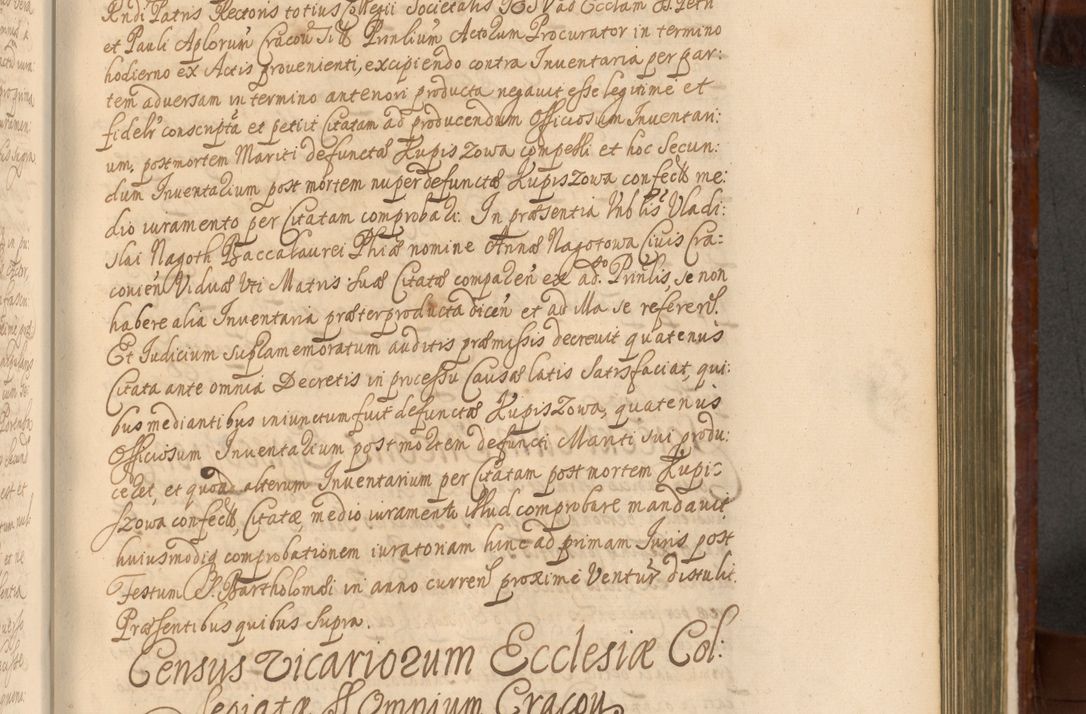 Rndi Patris Rectoris totius Collegii Societatis JESV ad Ecclam SS. Petri
et Pauli Aplorum Cracov. Sitt Prinlium Actorum Procurator in termino
hodierno ex Actis provenienti, excipiendo contra Inventaria per par:
tem adversam in termino anteriori producta negavit esse legitime et
fidelr conscripta et petiit Citatam ad producendum Officiosum Inventari:
um, post mortem Mariti defunctæ Kupiszowa compelli et hoc secun:
dum Inventarium post mortem nuper defunctæ Kupiszowa confectū me:
dio iuramento per Citatam comprobari. In præsentia Nblis Vladi:
slai Nagoth Baccalaurei Phiæ nomine Annæ Nagotowa Civis Cra:
covien Viduæ uti Matris suæ Citatæ comparen ex ad. so Prinlis, se non
habere alia Inventaria præter producta dicen et ad illa se referen.
Et Iudicium supramemoratum auditis præmissis decrevit quatenus
Citata ante omnia Decretis in processu Causæ latis satisfaciat, qui:
bus mediantibus iniunctum fuit defunctæ Kupiszowa, quatenus
Officiosum Inventarium post mortem defuncti Mariti sui produ:
ceret, et quod alterum Inventarium per Citatam post mortem Kupi:
szowa confectū, Citatæ, medio iuramento illud comprobare mandavit
huiusmodiq comprobationem iuratoriam hinc ad primam Iuris post
Festum S. Bartholomæi in anno curren proxime Ventur distulit.
Præsentibus quibus supra.
Census Vicariorum Ecclesiæ Col:
legiatæ SS Omnium Cracov